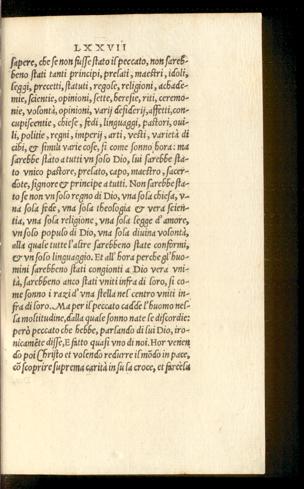 LXXVII
sapere, che se non fusse stato il peccato, non sareb-
beno stati tanti principi, prelati, maestri, idoli,
leggi, precetti, statuti, regole, religioni, achade-
mie, scientie, opinioni, sette, heresie, riti, ceremo-
nie, volontà, opinioni, varij desiderij, affetti, con-
cupiscentie, chiese, fedi, linguaggi, pastori, oui-
li, politie, regni, imperij, arti, vesti, varietà di
cibi, & simili varie cose, si come sonno hora: ma
sarebbe stato a tutti vn solo Dio, lui sarebbe sta-
to vnico pastore, prelato, capo, maestro, sacer-
dote, signore & principe a tutti. Non sarebbe sta-
to se non vn solo regno di Dio, vna sola chiesa, v-
na sola fede, vna sola theologia & vera scien-
tia, vna sola religione, vna sola legge d'amore,
vn solo popolo di Dio, vna sola diuina volontà,
alla quale tutte l'altre sarebbeno state conformi,
& vn solo linguaggio. Et all'hora perche gl'huo-
mini sarebbeno stati congionti a Dio vera vni-
tà, sarebbeno anco stati vniti infra di loro, si co-
me sonno i razi d'vna stella nel centro vniti in-
fra di loro. Ma per il peccato cadde l'huomo nel-
la moltitudine, dalla quale sonno nate le discordie:
però peccato che hebbe, parlando di lui Dio, iro-
nicamēte disse, E fatto quasi vno di noi. Hor venen
do poi Christo et volendo redurre il mōdo in pace,
cō scoprire suprema carità in su la croce, et farcela